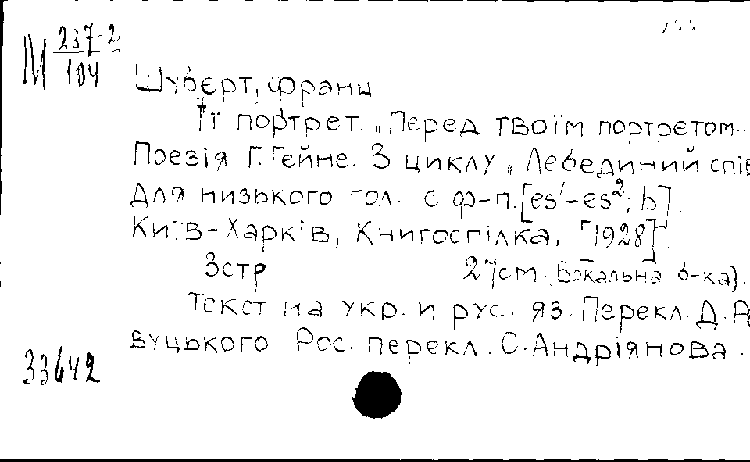 М 237-2
104
Шуберт, Франц
Її портрет. „Перед твоїм портретом...
Поезія Г. Гейне. З циклу „Лебединий спів
для низького гол. с ф-п. [es¹-es²; h].
Київ-Харків, Книгоспілка, [1928].
3стр 27см. (Вокальна б-ка).
Текст на укр. и рус. яз. Перекл. Д. Ре
вуцького Рос. перекл. С. Андріянова.
33642